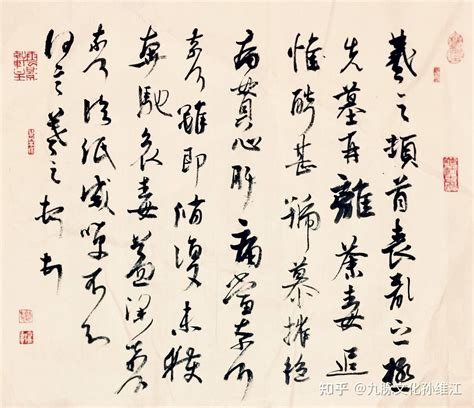 羲之頓首喪亂之極
先墓再離荼毒追
惟酷甚號慕摧絕
痛貫心肝痛當奈何
奈何雖即脩復未獲
奔馳哀毒益深奈何
奈何臨紙感哽不知
何言羲之頓首
知乎 @九脉文化孙维江